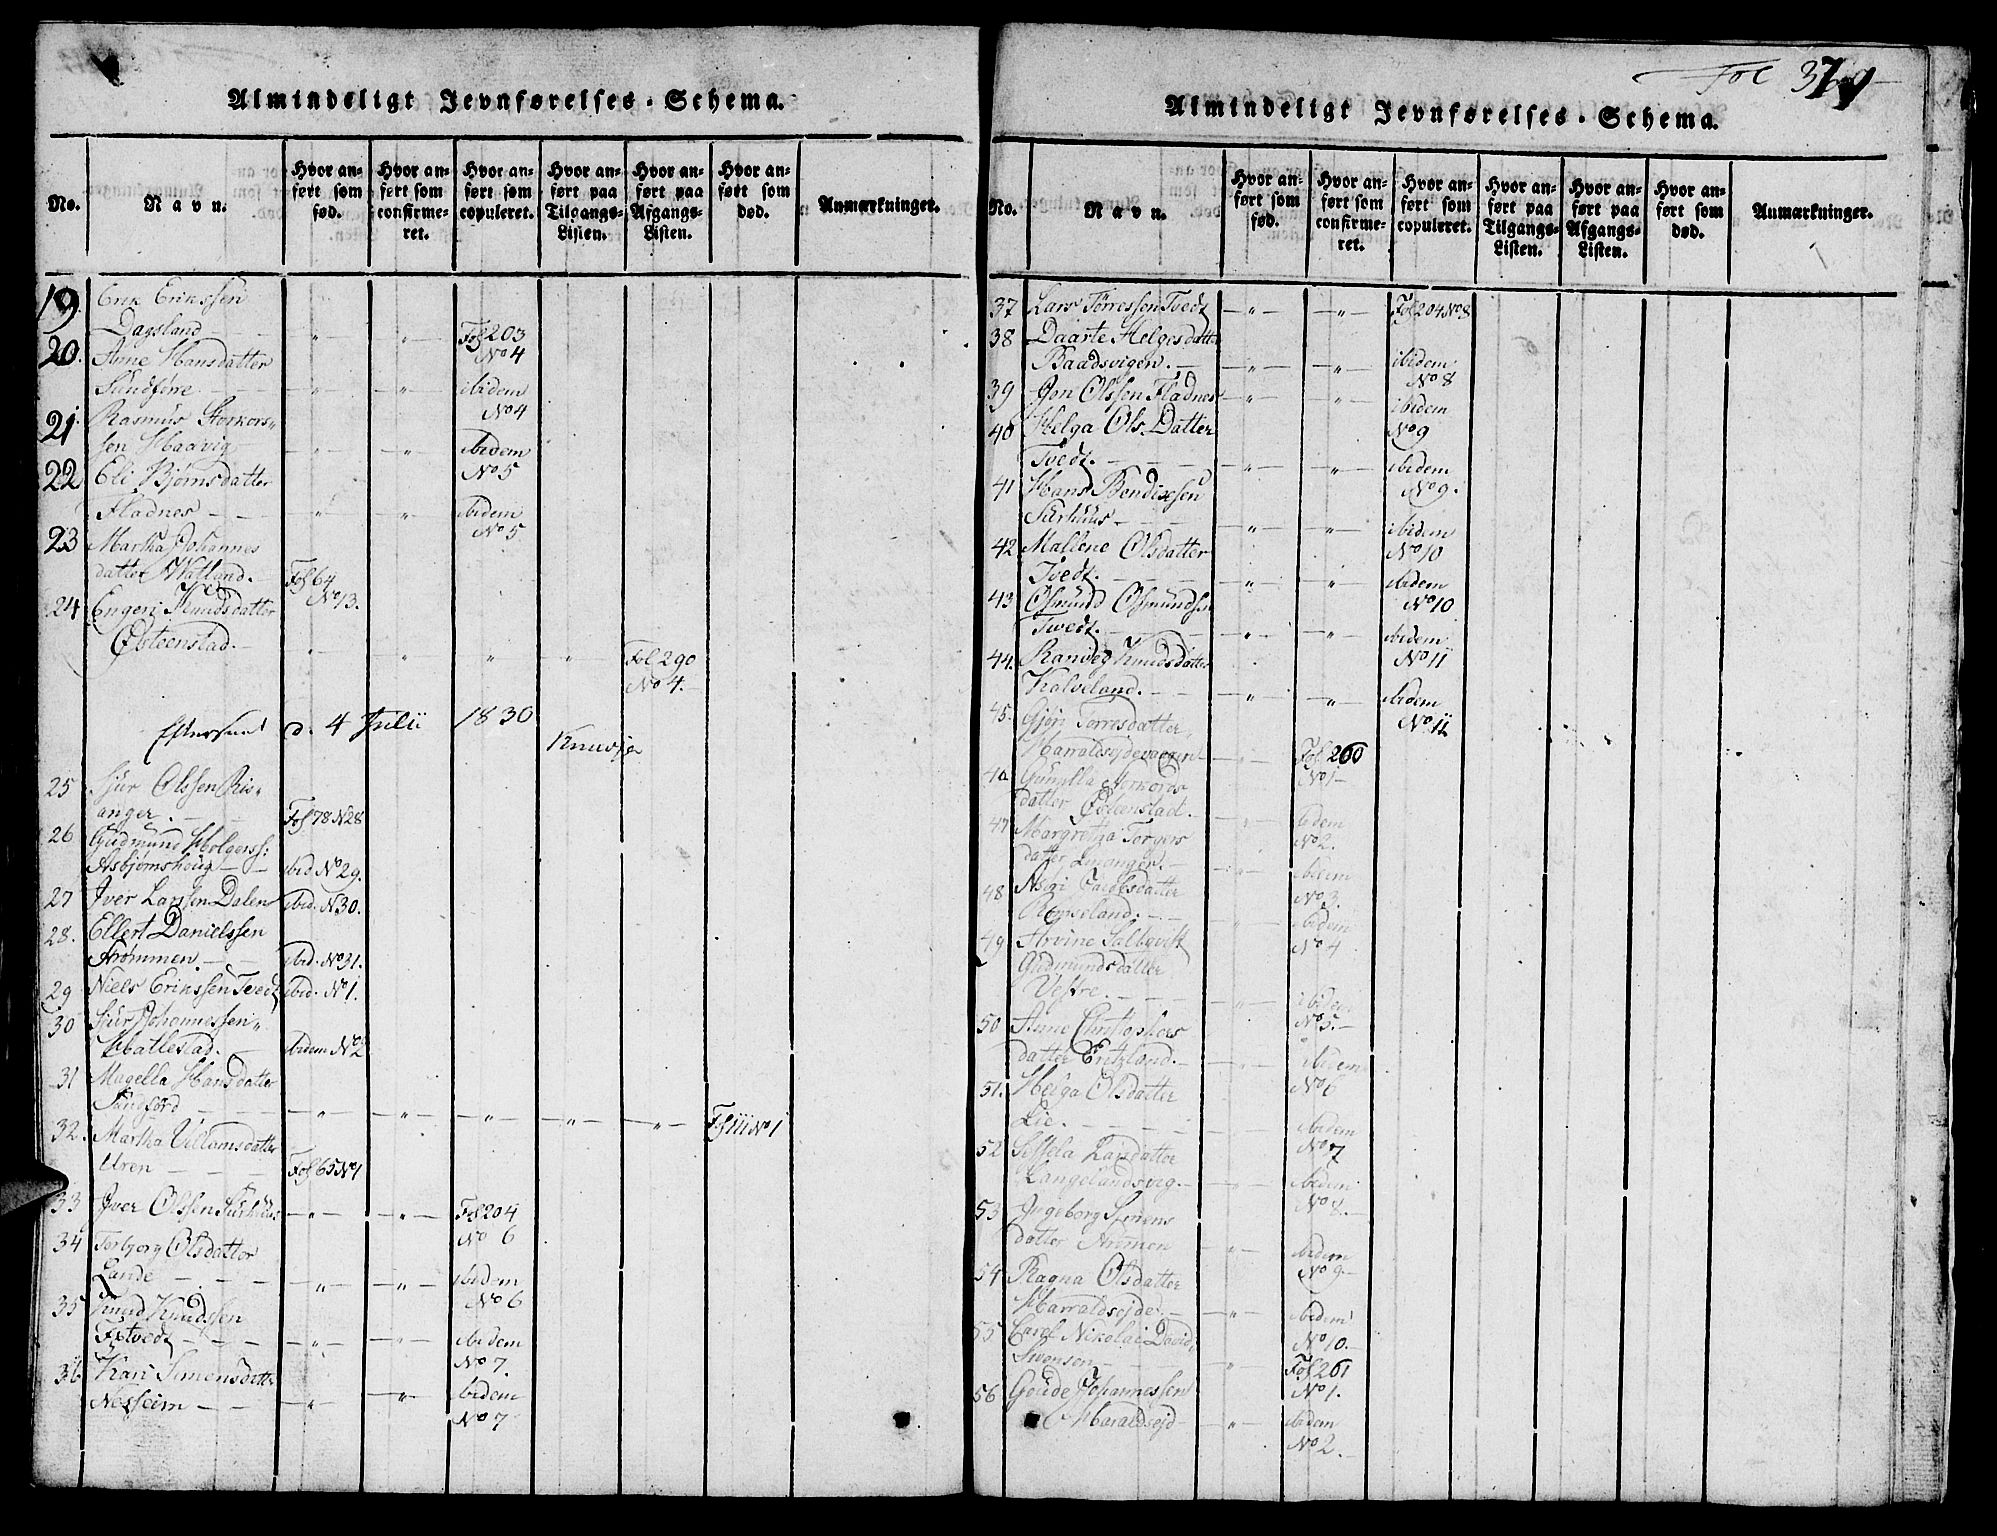 Almindeligt Jevnførelses-Schema.
No.
Navn.
Hvor anført som fød.
Hvor anført som confirmeret.
Hvor anført som copuleret.
Hvor anført paa Tilgangs-Listen.
Hvor anført paa Afgangs-Listen.
Hvor anført som død.
Anmærkninger.
19. Erik Erikssen
Dagsland — " — " — Fol 203 No 4
20. Anne Hansdatter
Sundføre — " — " — ibidem No 4
21. Rasmus Storkors„
sen Haavig — " — " — ibidem No 5
22 Eli Bjørnsdatter
Fladnes — " — " — ibidem No 5
23 Martha Johannes
datter Watland. Fol 64 No 13.
24 Engeri Knudsdatter
Østeenstad. — " — " — " — " — Fol 290 No 4.
Efterseet d. 4 Julii 1830
25 Sjur Olssen Ris„
anger. — Fol 78 N 28
26 Gudmund Holgerss:
Asbjørnshoug — ibid No 29.
27 Iver Larssen Dalen ibid. N 30.
28. Ellert Danielssen
Strømmen. — ibid. No 31.
29 Niels Erikssen Tvedt ibid. No 1.
30 Sjur Johannessen„
Hatlestad. — ibidem No 2
31 Magella Hansdatter
Sandførd — " — " — " — " — " — Fol 111 No 1
32. Martha Villamsdatter
Uren — Fol 65 No 1
33 Iver Olssen Surhuus — " — " — Fol 204 No 6
34 Torbjorg Olsdatter
Lande — " — " — ibidem No 6
35 Knud Knudssen
Fixtvedt — " — " — ibidem No 7.
36 Kari Simensdatter
Nesseim — " — " — ibidem No 7
Fol 371
Almindeligt Jevnførelses-Schema.
No.
Navn.
Hvor anført som fød.
Hvor anført som confirmeret.
Hvor anført som copuleret.
Hvor anført paa Tilgangs-Listen.
Hvor anført paa Afgangs-Listen.
Hvor anført som død.
Anmærkninger.
37 Lars Tørressen Tvedt — " — " — Fol 204 No 8
38 Daarte Helgesdatter
Baadsvigen. — " — " — ibidem No 8
39 Jon Olssen Fladnes — " — " — ibidem No 9
40 Helga Ols Datter
Tvedt. — " — " — ibidem No 9.
41 Hans Bendixsen
Surhuus — " — " — ibidem No 10
42 Mallene Olsdatter
Tvedt. — " — " — ibidem No 10
43 Osmund Osmundsen
Twedt. — " — " — ibidem No 11
44. Ranveg Knudsdatter
Kolveland. — " — " — ibidem No 11
45. Gjøri Torresdatter,
Harraldsejdevaagen — " — Fol 260 No 1
46 Gunilla Storkors
datter Østeenstad. — " — ibidem No 2.
47 Margretha Torgers
datter Imanger. — " — ibidem No 3.
48 Asbri Jacobsdatter
— " — ibidem No 4
49
Gudmundsdatter
Vestre. — " — ibidem No 5.
50 Anne Christophers
datter Eritzland. — " — ibidem No 6
51. Helga Olsdatter
Lie. — ibidem No 7
52 Sissela Larsdatter
Langelandsvig. — " — ibidem No 8.
53 Ingeborg Simens
datter Strømen — " — ibidem No 9.
54 Ragna Olsdatter
Harraldsejde. — " — ibidem No 10.
55 Carel Nikolai David
Svensen — " — Fol 261 No 1.
56 Goude Johannessen
Haraldsejd — " — ibidem No 2.